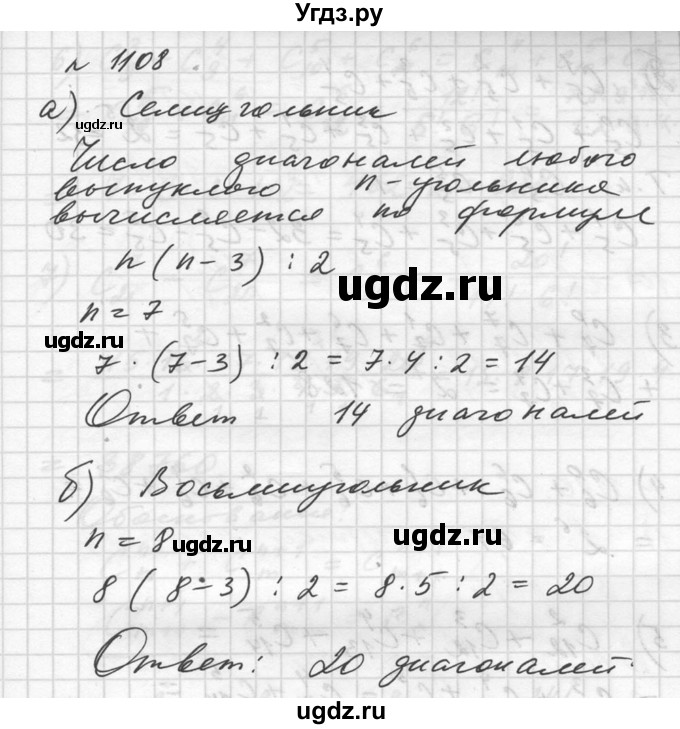 Угдз.ру
№ 1108
а) Семиугольник
ugdz.ru
Число диагоналей любого
выпуклого n-угольника
вычисляется по формуле
n(n-3) : 2
ugdz.ru
n = 7
ugdz.ru
7 · (7-3) : 2 = 7 · 4 : 2 = 14
Ответ 14 диагоналей
б) Восьмиугольник
n = 8
ugdz.ru
ugdz.ru
8(8-3) : 2 = 8 · 5 : 2 = 20
Ответ: 20 диагоналей.
ugdz.ru